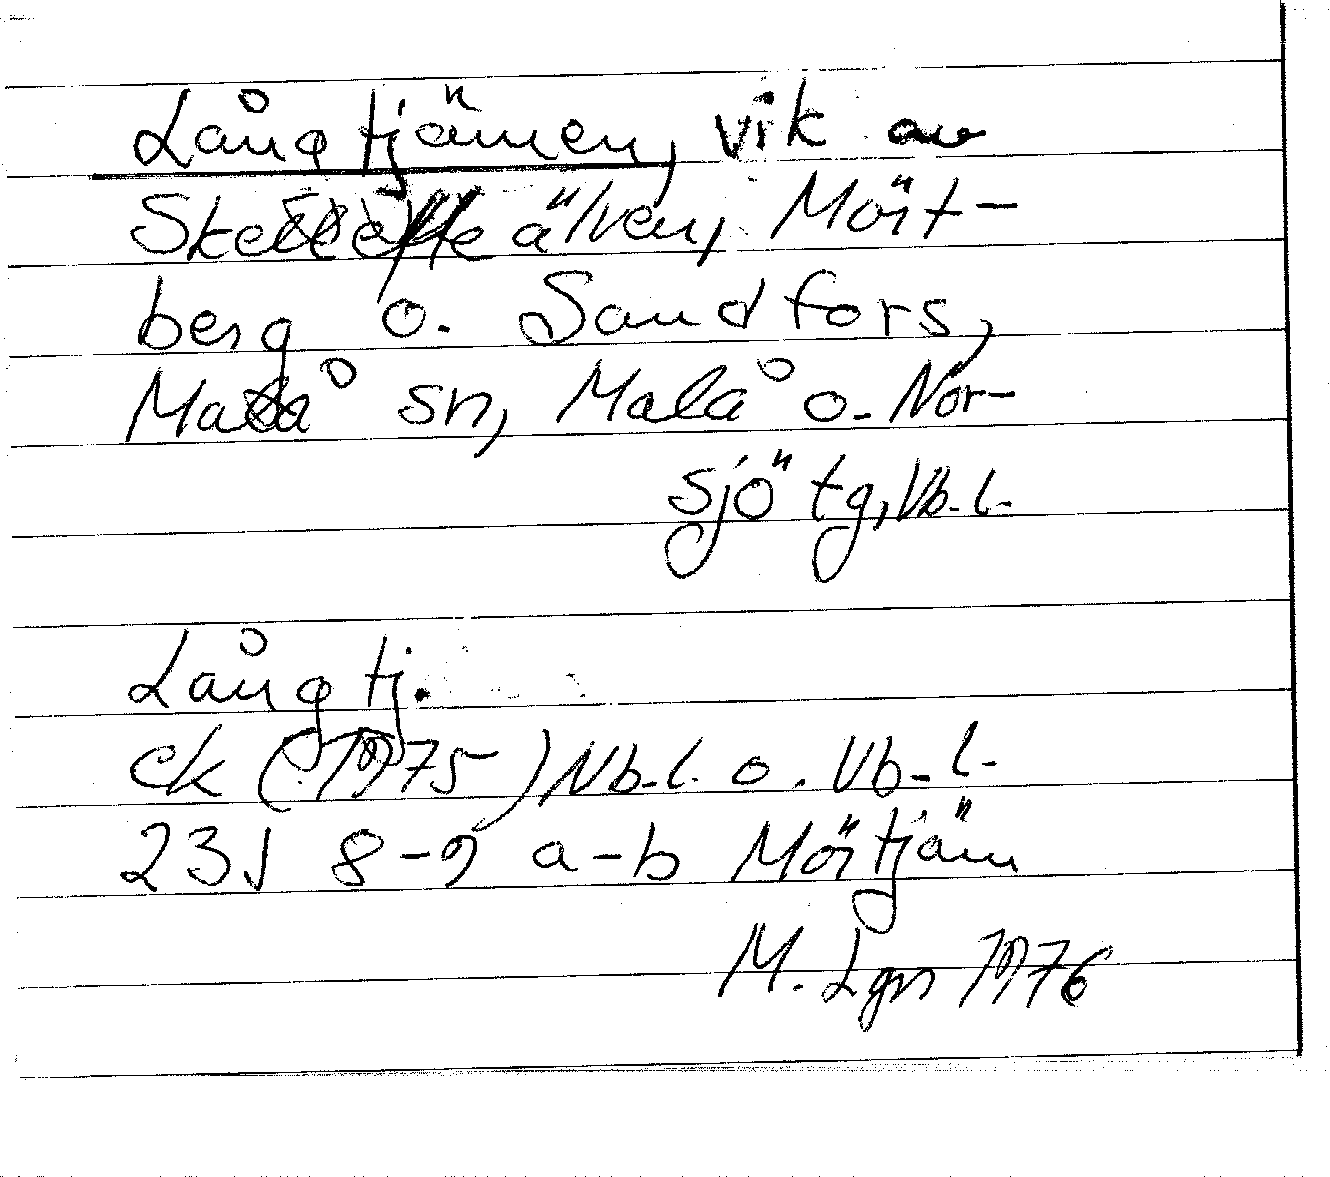 Långtjärnen, vik av
Skellefteälven, Mört-
berg o. Sandfors,
Malå sn, Malå o. Nor-
sjö tg, Vb.l.
Långtj.
ek (1975) Nb.l. o. Vb.l.
23J 8-9 a-b Mörtjärn
M. Lgn 1976